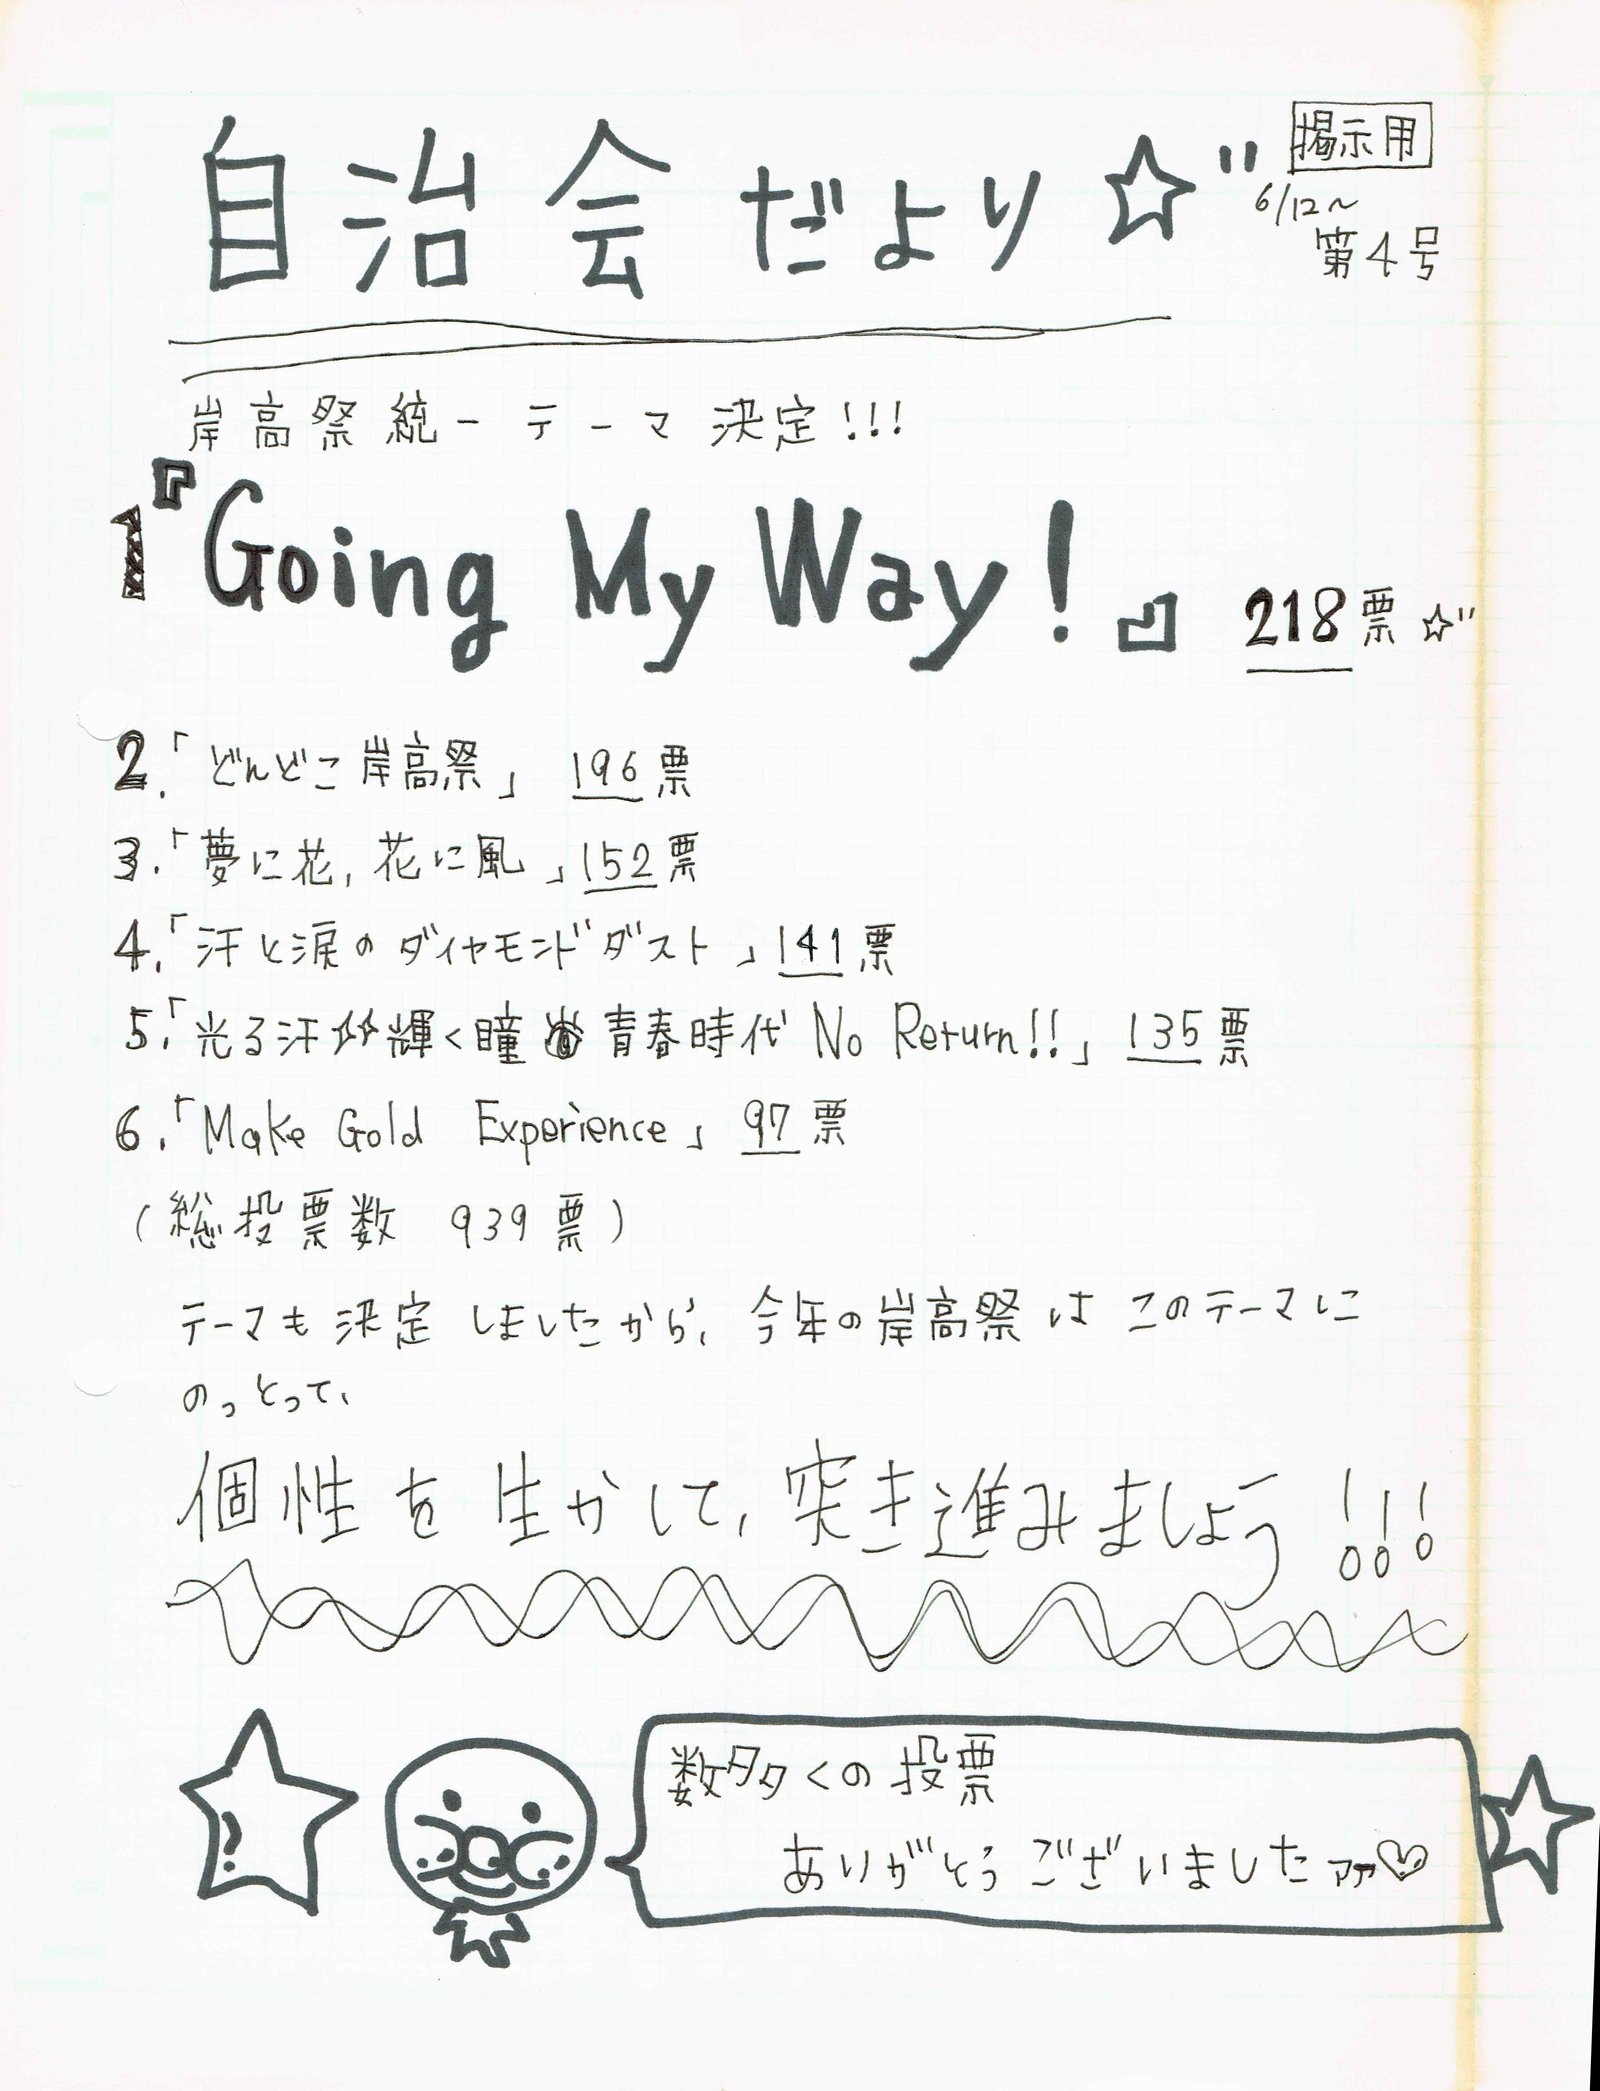 自治会だより☆"
掲示用
6/12〜
第4号
岸高祭統一テーマ決定!!!
1『Going My Way!』 218票☆"
2.「どんどこ岸高祭」 196票
3.「夢に花,花に風」152票
4.「汗と涙のダイヤモンドダスト」141票
5.「光る汗☆☆輝く瞳 青春時代 No Return!!」 135票
6.「Make Gold Experience」 97票
(総投票数 939票)
テーマも決定しましたから、今年の岸高祭はこのテーマに
のっとって、
個性を生かして,突き進みましょう!!!
数多くの投票
ありがとうございましたァァ♡